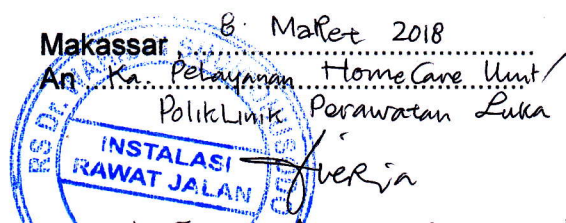 Makassar, 8. Maret 2018
An Ka. Pelayanan Home Care Unit/
Poliklinik Perawatan Luka
RS Dr.
INSTALASI
RAWAT JALAN